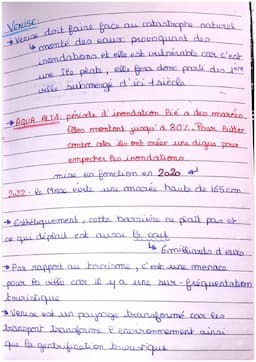 VENISE :
→ Venise doit faire face au catastrophe naturel
↳ monté des eaux provoquant des
inondations et elle est vulnérable car c'est
une île plate, elle fera donc partie des 1ère
ville submergé d'ici 1 siècle
→ AQUA ALTA : période d'inondation lié a des marées.
Elles montent jusqu'à 80%. Pour lutter
contre cela ils ont créer une digue pour
empecher les inondations
mise en fonction en 2020
2022 - le Mose évite une marée haute de 165cm
→ Esthétiquement, cette barrière ne plaît pas et
ce qui déplait est aussi le cout
↳ 6 milliards d'euro
→ Par rapport au tourisme, c'est une menace
pour la ville car il y a une sur-fréquentation
touristique
→ Venise est un paysage transformé car les
transport transforme l'environnement ainsi
que la gentrification touristique